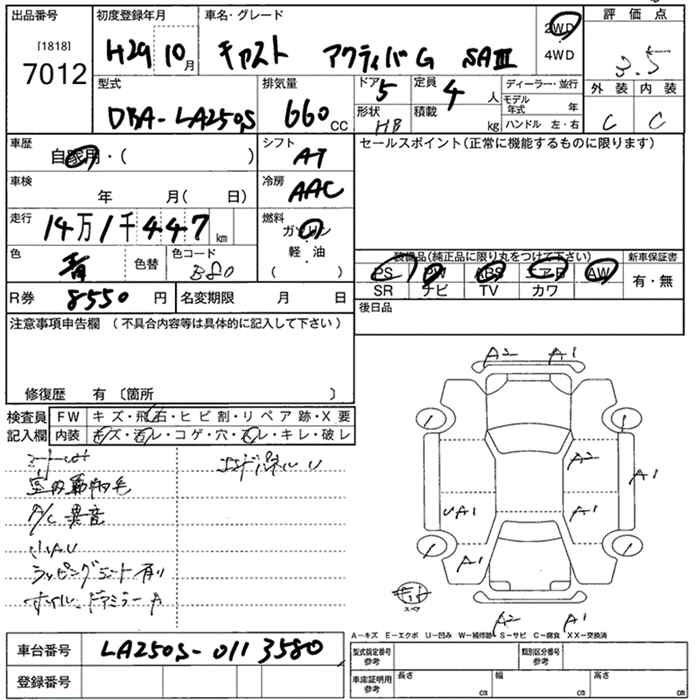 出品番号
[1818]
7012
初度登録年月
H29 10月
車名・グレード
キャスト アクティバG SAⅢ
2WD
4WD
評価点
3.5
外装 内装
C C
型式
DBA-LA250S
排気量
660cc
ドア 5
形状 HB
定員 4人
積載 kg
ディーラー・並行
モデル年式 年
ハンドル 左・右
車歴
自家用・( )
シフト
AT
セールスポイント(正常に機能するものに限ります)
車検
年 月( 日)
冷房
AAC
走行
14万1千447km
燃料
ガソリン
軽・油
( )
色
青
色替
色コード
B80
装備品(純正品に限り丸をつけて下さい)
PS PW ABS エアB AW
SR ナビ TV カワ
新車保証書
有・無
R券 8550円
名変期限 月 日
後日品
注意事項申告欄 (不具合内容等は具体的に記入して下さい)
修復歴 有 〔箇所 〕
検査員記入欄
FW キズ・飛石・ヒビ割・リペア跡・X要
内装 キズ・汚レ・コゲ・穴・スレ・キレ・破レ
エンドパネルU
A/C異音
小キズU
ラッピングシート有り
ホイル、ドアミラーA
A2 A1
A2
A1
UA1
A1
A1
スペア
A2 A1
A-キズ E-エクボ U-凹み W-補修跡 S-サビ C-腐食 XX-交換済
車台番号 LA250S-0113580
登録番号
型式指定番号 参考
類別区分番号 参考
車庫証明用 参考
長さ cm
幅 cm
高さ cm